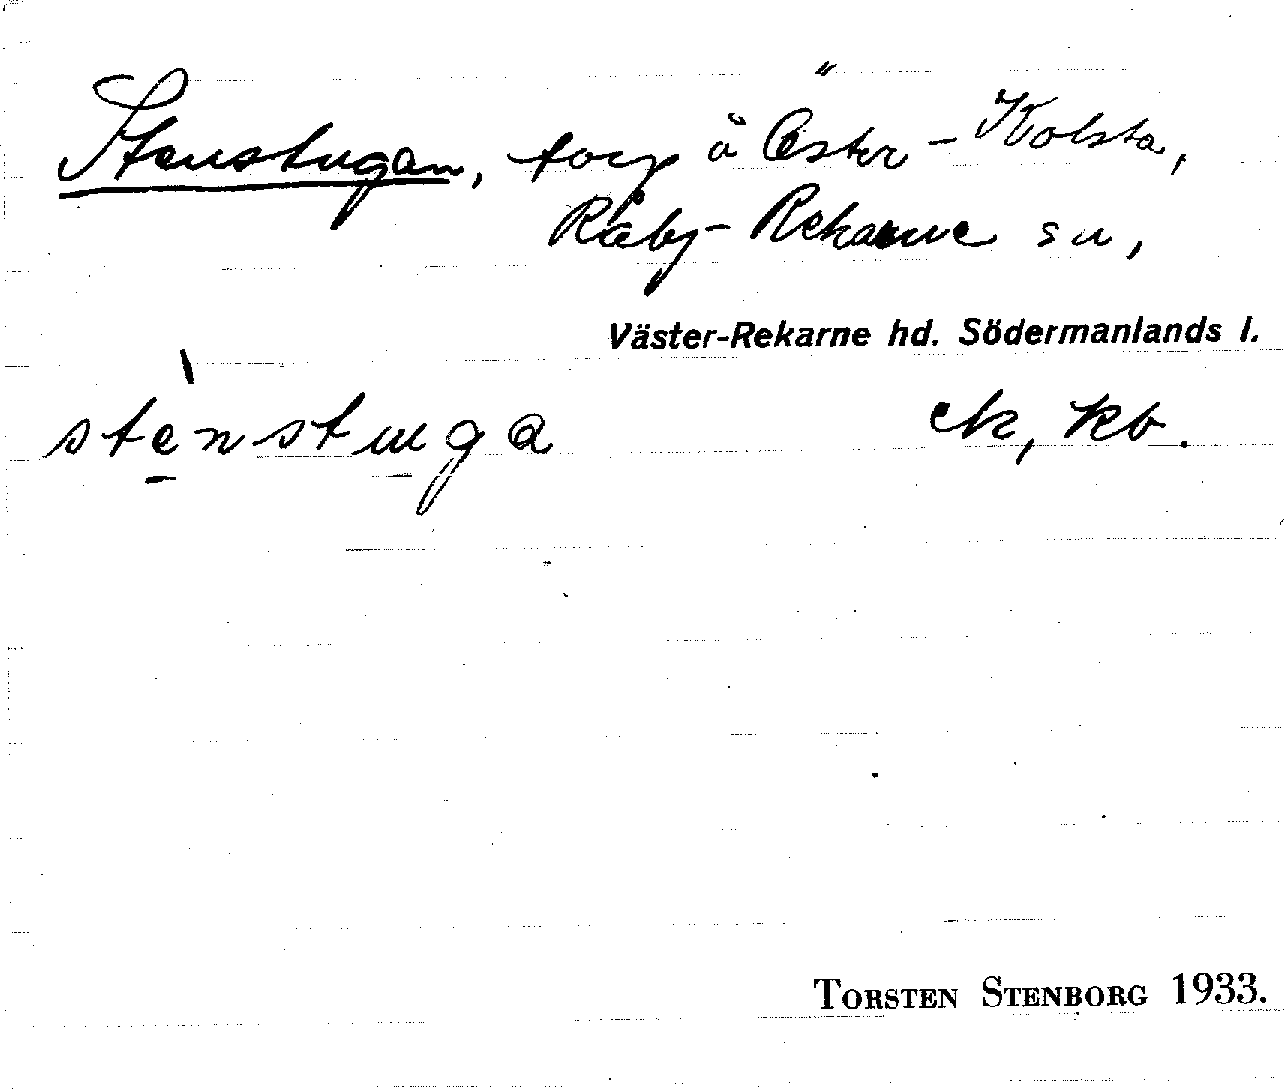 Stenstugan, torp å Öster-Kolsta,
Råby-Rekarne sn,
Väster-Rekarne hd. Södermanlands l.
stènstuga ek, kb.
TORSTEN STENBORG 1933.